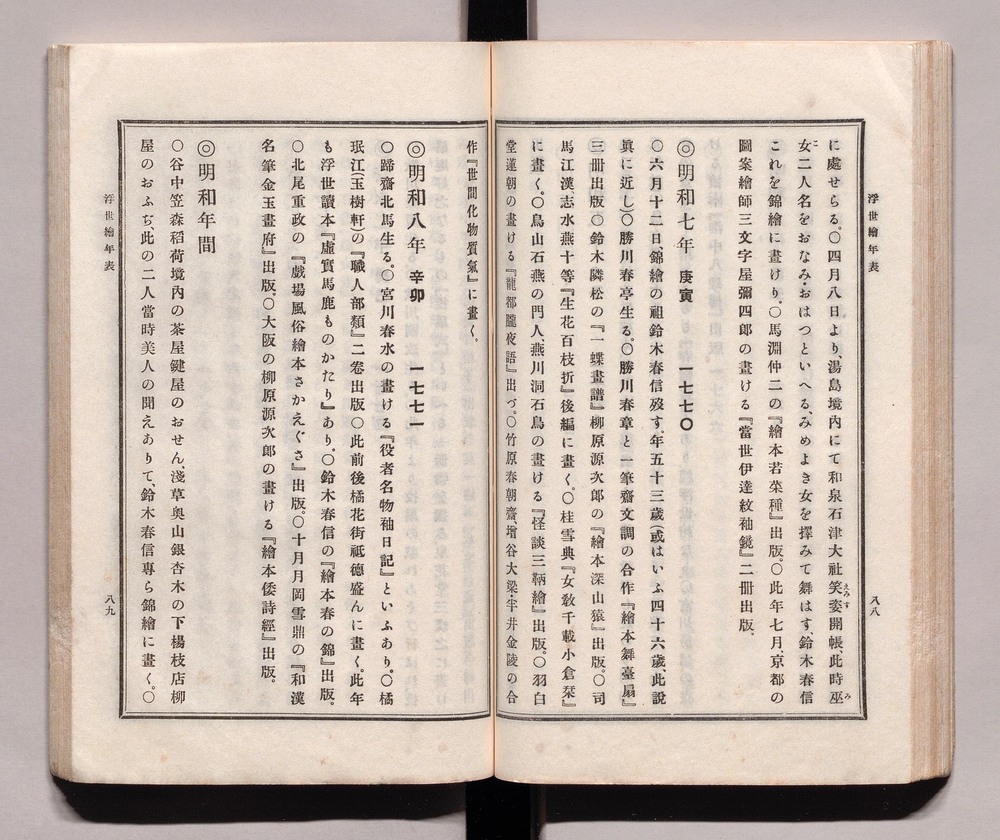 浮世繪年表
八八
に處せらる。〇四月八日より、湯島境內にて和泉石津大社笑姿開帳、此時巫
女二人名をおなみ・おはつといへる、みめよき女を擇みて舞はす、鈴木春信
これを錦繪に畫けり。〇馬淵仲二の『繪本若菜種』出版。〇此年七月京都の
圖案繪師三文字屋彌四郎の畫ける『當世伊達紋袖鏡』二冊出版、
◎明和七年 庚寅 一七七〇
〇六月十二日、錦繪の祖鈴木春信歿す、年五十三歲(或はいふ四十六歲、此說
眞に近し)〇勝川春亭生る。〇勝川春章と一筆齋文調の合作『繪本舞臺扇』
三冊出版〇鈴木隣松の『一蝶畫譜』柳原源次郎の『繪本深山猿』出版。〇司
馬江漢志水燕十等『生花百枝折』後編に畫く。〇桂雪典『女敎千載小倉栞』
に畫く。〇鳥山石燕の門人、燕川洞石鳥の畫ける『怪談三鞆繪』出版。〇羽白
堂蓮朝の畫ける『龍都朧夜語』出づ。〇竹原春朝齋、增谷大梁・半井金陵の合
作『世間化物質氣』に畫く。
◎明和八年 辛卯 一七七一
〇蹄齋北馬生る。〇宮川春水の畫ける『役者名物袖日記』といふあり。〇橘
珉江(玉樹軒)の『職人部類』二卷出版〇此前後橘花街祇德盛んに畫く。此年
も浮世讀本『虛實馬鹿ものかたり』あり。〇鈴木春信の『繪本春の錦』出版。
〇北尾重政の『戲場風俗繪本さかえぐさ』出版。〇十月月岡雪鼎の『和漢
名筆金玉畫府』出版。〇大阪の柳原源次郎の畫ける『繪本倭詩經』出版。
◎明和年間
〇谷中笠森稻荷境內の茶屋鍵屋のおせん、淺草奧山銀杏木の下楊枝店柳
屋のおふぢ、此の二人當時美人の聞えありて、鈴木春信專ら錦繪に畫く。〇
浮世繪年表
八九